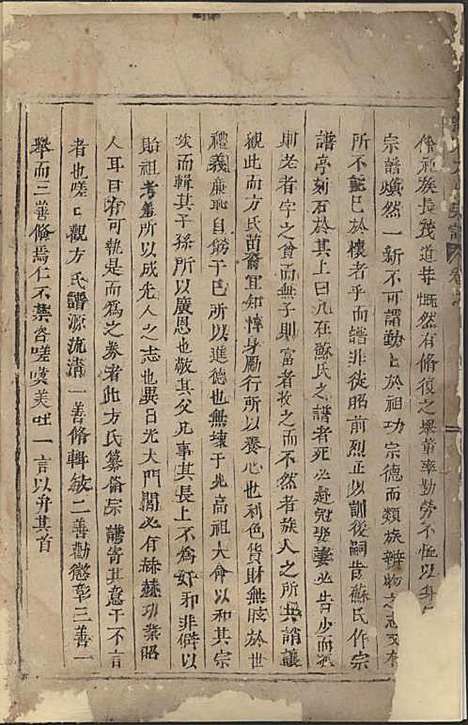 族長茂道甚慨然有脩復之舉董率勤勞不怠以
宗譜煥然一新不可謂勤上於祖功宗德而類族辨物之
所不能已於懷者乎而譜非從昭前烈正以訓後嗣昔蘇氏作宗
譜亭刻石於其上曰凡在蘇氏之譜者死必赴冠娶妻必告少而孤
則老者字之貧而無子則富者收之而不然者族人之所共誚讓
觀此而方氏苗裔宜知惇身勵行所以養心也利色貨財無賊於世
禮義廉恥自飭于己所以進德也無壞于先高祖大命以和其宗
族而輯其干孫所以廣恩也敬其父凡事其長上不為奸和非僻以
貽祖考羞所以成先人之志也異日光大門閭必有赫赫功業昭
人耳目有可執是而為之券者此方氏纂脩宗譜寄其意于不言
者也嗟乚觀方氏譜源流清一善脩輯敏二善勸懲彰三善一
舉而三善備焉仁不棄咨嗟嘆美吐一言以弁其首